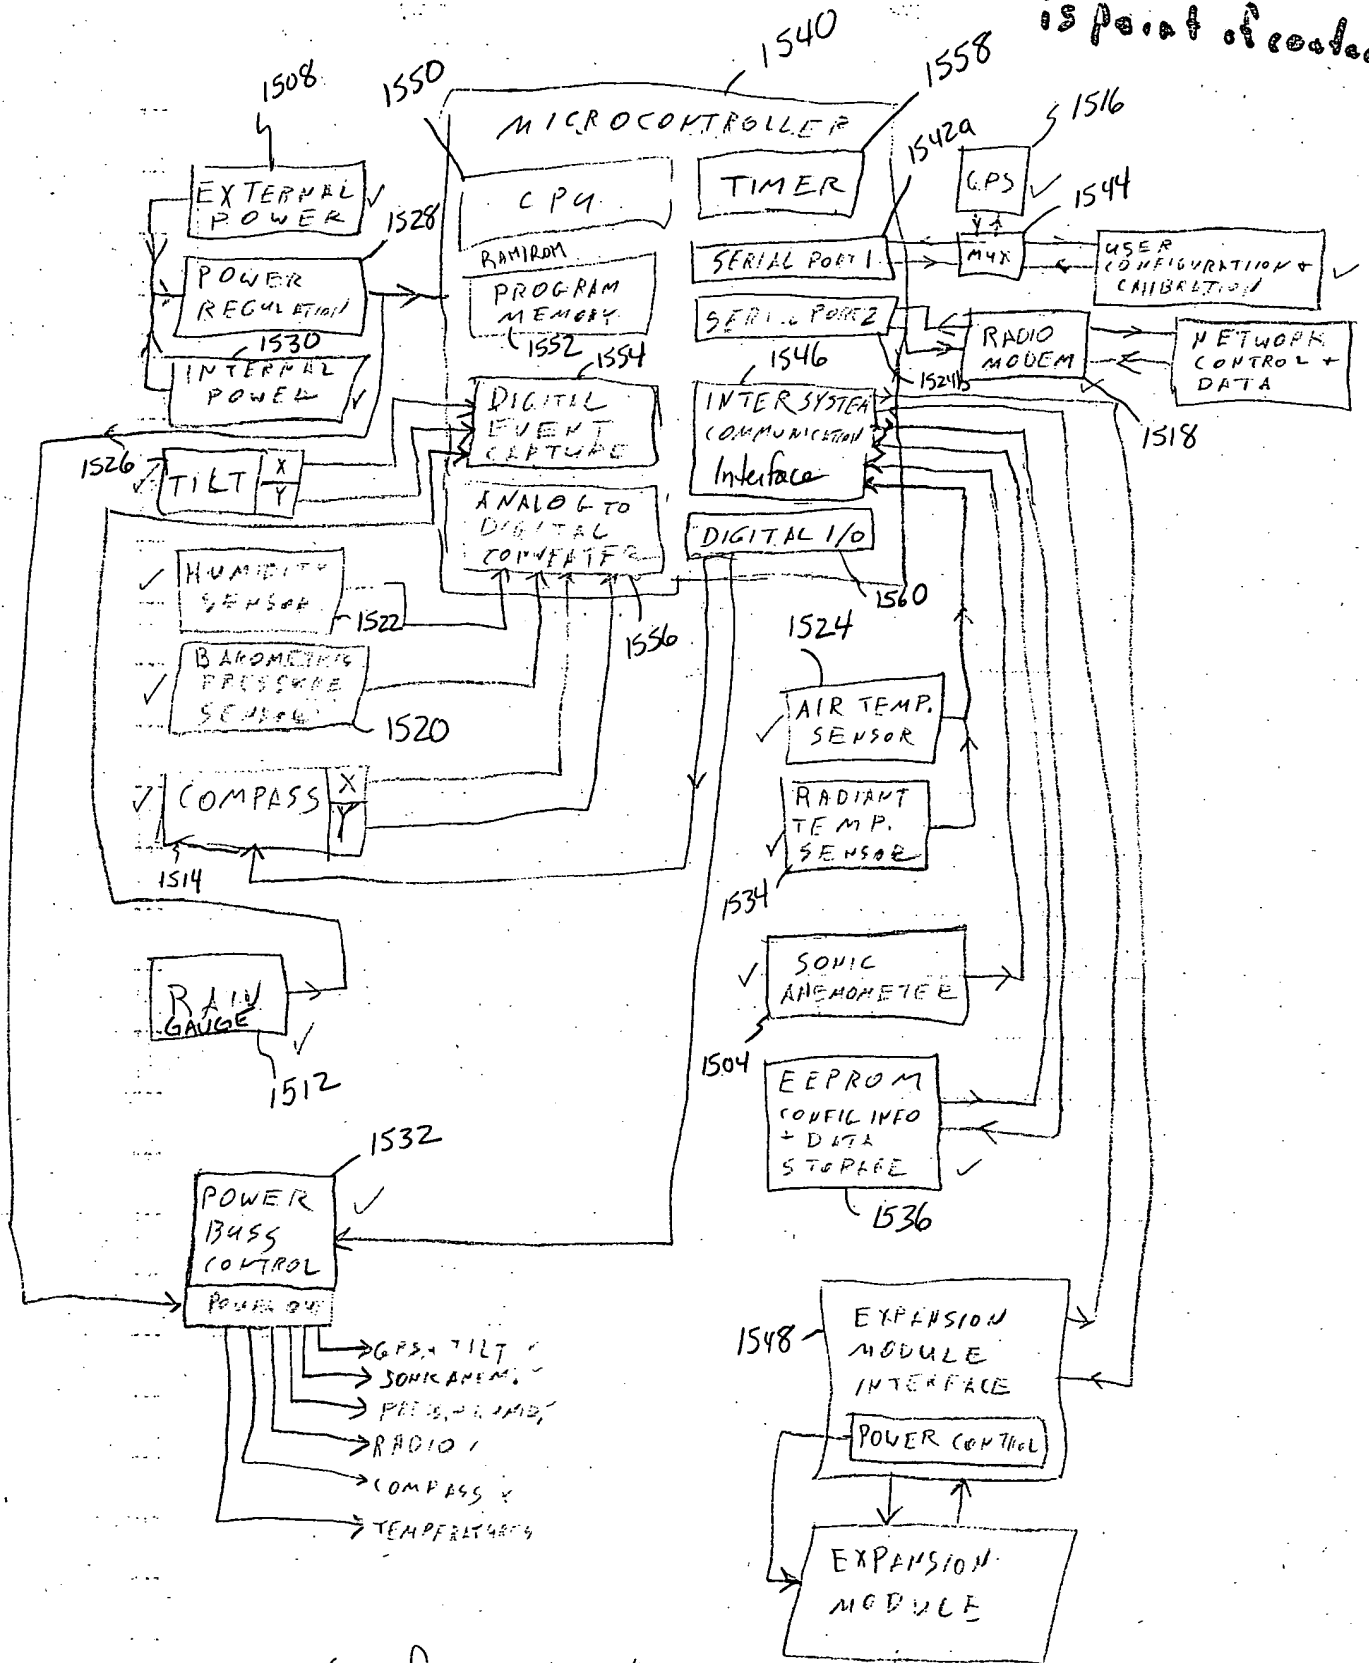 is point of
1540
1550
1558
1508
MICROCONTROLLER
1542a
1516
EXTERNAL
POWER
1528
CPU
TIMER
GPS
1544
RAM/ROM
SERIAL PORT 1
MUX
USER
CONFIGURATION +
CALIBRATION
POWER
REGULATION
PROGRAM
MEMORY
1552
SERIAL PORT 2
RADIO
MODEM
NETWORK
CONTROL +
DATA
1530
INTERNAL
POWER
1554
1546
1524b
1518
DIGITAL
EVENT
CAPTURE
INTERSYSTEM
COMMUNICATION
Interface
1526
TILT
X
Y
ANALOG TO
DIGITAL
CONVERTER
DIGITAL I/O
1560
HUMIDITY
SENSOR
1522
1556
1524
BAROMETRIC
PRESSURE
SENSOR
1520
AIR TEMP.
SENSOR
COMPASS
X
Y
1514
RADIANT
TEMP.
SENSOR
1534
RAIN
GAUGE
1512
SONIC
ANEMOMETER
1504
EEPROM
CONFIG INFO
+ DATA
STORAGE
1536
1532
POWER
BUSS
CONTROL
POWER OUT
GPS + TILT
SONIC ANEM.
RADIO
COMPASS
TEMPERATURES
1548
EXPANSION
MODULE
INTERFACE
POWER CONTROL
EXPANSION
MODULE